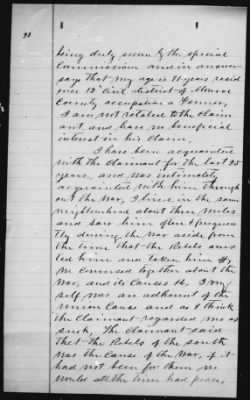 31
being duly sworn by the special
Commissioner and in answer
says that my age is 71 years resid
ence 13" Civil district of Monroe
County occupation a Farmer,
I am not related to the claim
ant and have no beneficial
interest in his Claim,
I have been acquainted
with the Claimant for the last 25
years, and was intimately
acquainted with him through
out the War, I lived in the same
neighborhood about three miles
and saw him often & frequen
tly during the War aside from
the time that the Rebels arres
ted him and taken him off
We Conversed together about the
War, and its Causes &c, I my
self was an adherent of the
Union Cause and as I think
the Claimant regarded me as
such, The Claimant said
that the Rebels of the south
was the Cause of the War, if it
had not been for them we
would all the time had peace,